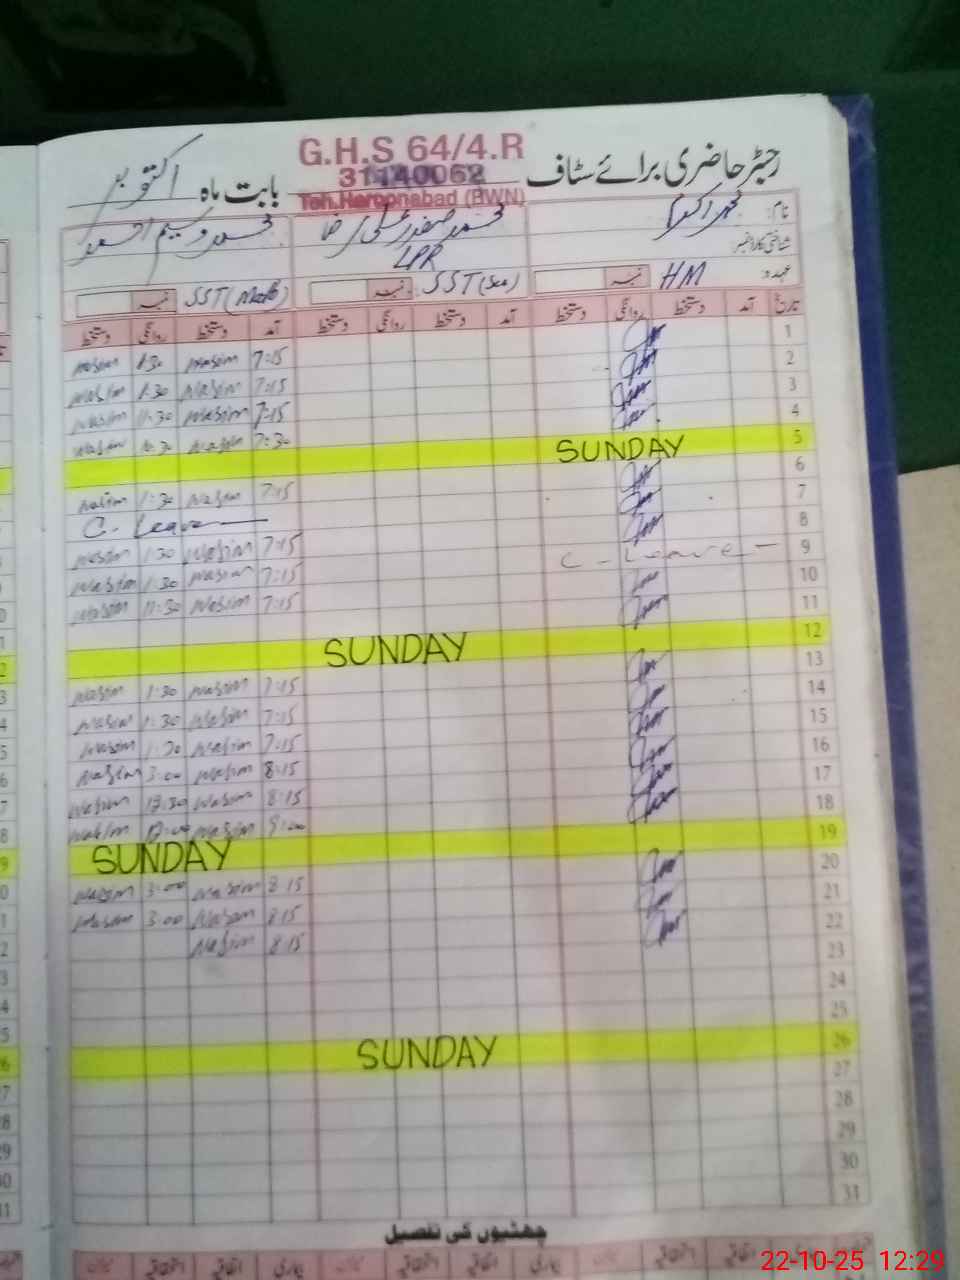 رجسٹر حاضری برائے سٹاف G.H.S 64/4.R بابت ماہ اکتوبر
31140062
Teh.Haroonabad (BWN)
نام: محمد اکرم محمد صفدر علی رضا محمد وسیم احمد
شناختی کارڈ نمبر LPR
عہدہ HM نمبر SST (Sci) نمبر SST (Math) نمبر
تاریخ آمد دستخط روانگی دستخط آمد دستخط روانگی دستخط آمد دستخط روانگی دستخط
1 7:15 Wasim 1:30 Wasim
2 7:15 Wasim 1:30 Wasim
3 7:15 Wasim 11:30 Wasim
4 7:30 Wasim 1:30 Wasim
5 SUNDAY
6 7:15 Wasim 1:30 Wasim
7 C. Leave
8 7:15 Wasim 1:30 Wasim
9 C - Leave - 7:15 Wasim 1:30 Wasim
10 7:15 Wasim 11:30 Wasim
11
12 SUNDAY
13 7:15 Wasim 1:30 Wasim
14 7:15 Wasim 1:30 Wasim
15 7:15 Wasim 1:30 Wasim
16 8:15 Wasim 3:00 Wasim
17 8:15 Wasim 12:30 Wasim
18 9:00 Wasim 12:00 Wasim
19 SUNDAY
20 8:15 Wasim 3:00 Wasim
21 8:15 Wasim 3:00 Wasim
22 8:15 Wasim
23
24
25
26 SUNDAY
27
28
29
30
31
چھٹیوں کی تفصیل
بیماری اتفاقیہ استحقاقیہ بیماری اتفاقیہ استحقاقیہ
22-10-25 12:29